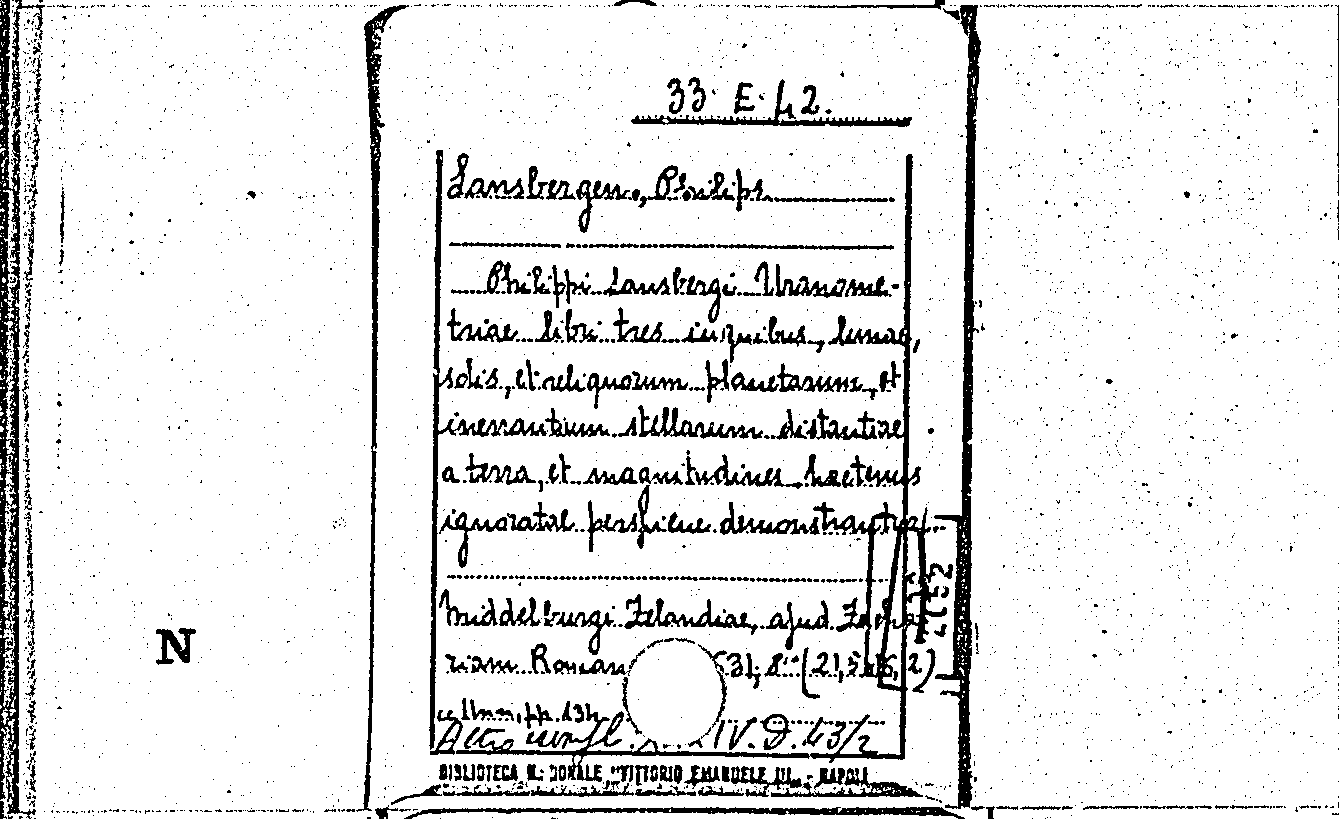 33 E. 42.
Lansbergen, Philips
Philippi Lansbergi Uranome-
triae libri tres in quibus, lunae,
solis, et reliquorum planetarum, et
inerrantium stellarum distantiae
a terra, et magnitudines hactenus
ignoratae perspicue demonstrantur.
Middelburgi Zelandiae, apud Zacha
riam Roman 631, 8° (21,5x16,2)
cc. nn., pp. 134
Altro IV. D. 43/2
BIBLIOTECA N. ZIONALE "VITTORIO EMANUELE III" - NAPOLI
N